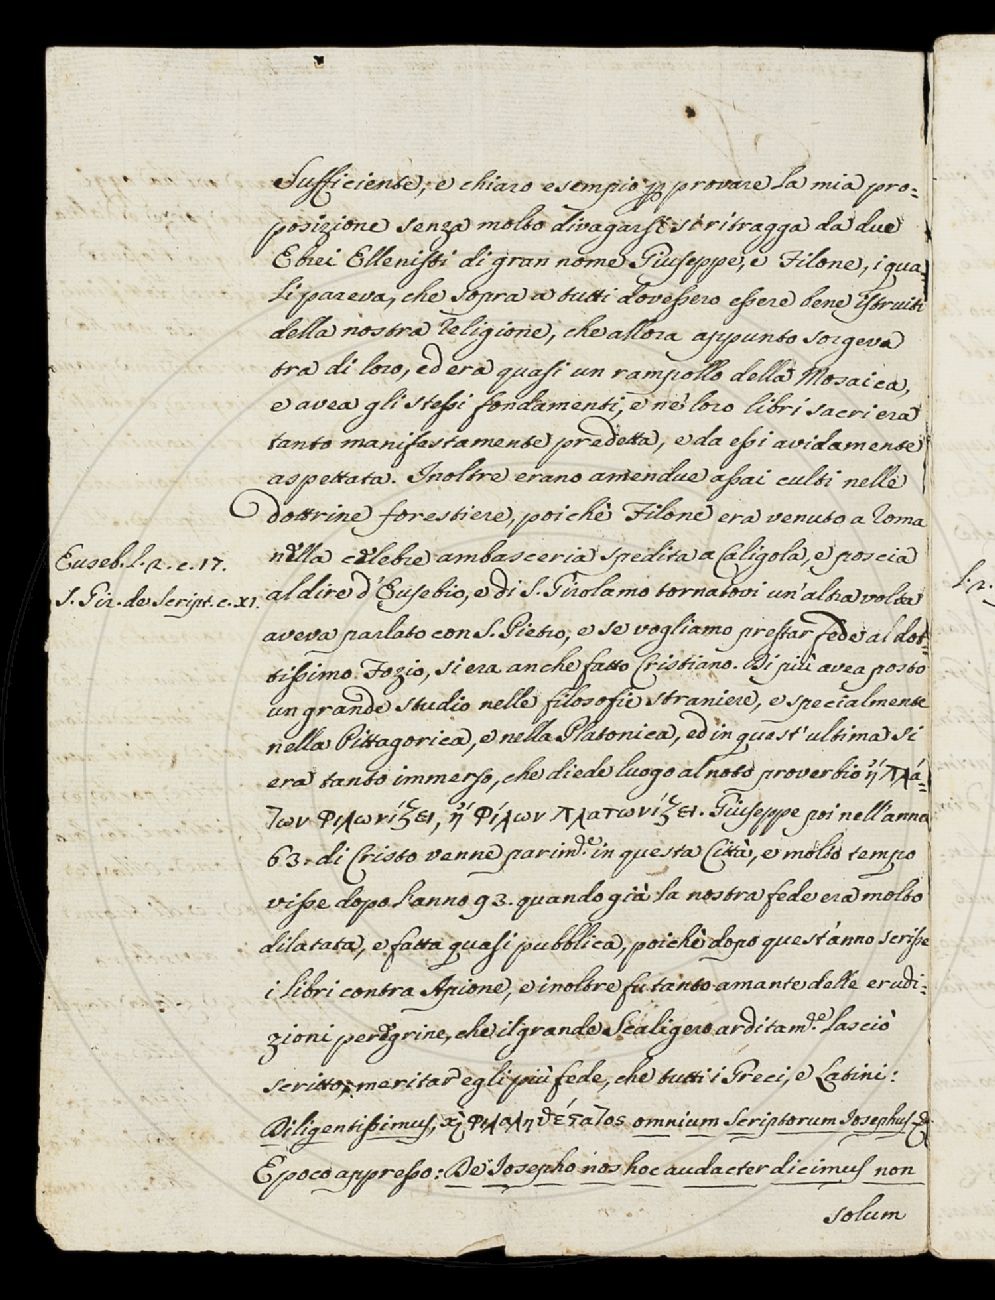 Sufficiente, e chiaro esempio p provare la mia pro=
posizione senza molto divagarsi si ritragga da due
Ebrei Ellenisti di gran nome Giuseppe, e Filone, i qua=
li pareva, che sopra a tutti dovessero essere bene istruiti
della nostra Religione, che allora appunto sorgeva
tra di loro, ed era quasi un rampollo della Mosaica,
e avea gli stessi fondamenti, e ne' loro libri sacri era
tanto manifestamente predetta, e da essi avidamente
aspettata. Inoltre erano amendue assai culti nelle
dottrine forestiere, poichè Filone era venuto a Roma
Euseb. l. 2. c. 17.
nella celebre ambasceria spedita a Caligola, e poscia
S. Gir. de Script. c. XI.
al dire d'Eusebio, e di S. Girolamo tornatovi un'altra volta
aveva parlato con S. Pietro, e se vogliamo prestar fede al dot=
tissimo Fozio, si era anche fatto Cristiano. Di più avea posto
un grande studio nelle filosofie straniere, e specialmente
nella Pittagorica, e nella Platonica, ed in quest'ultima si
era tanto immerso, che diede luogo al noto proverbio ἤ Πλά=
των Φιλωνίζει, ἤ Φίλων πλατωνίζει. Giuseppe poi nell'anno
63. di Cristo venne parim.de in questa Città, e molto tempo
visse dopo l'anno 93. quando già la nostra fede era molto
dilatata, e fatta quasi pubblica, poichè dopo quest'anno scrisse
i libri contra Apione, e inoltre fu tanto amante delle erudi=
zioni peregrine, che il grande Scaligero arditam.e lasciò
scritto, meritar egli più fede, che tutti i Greci, e Latini:
Diligentissimus, ϗ φιλαληθέςατος omnium Scriptorum Josephus &
E poco appresso: De Josepho nos hoc audacter dicimus non
solum
l. 2.